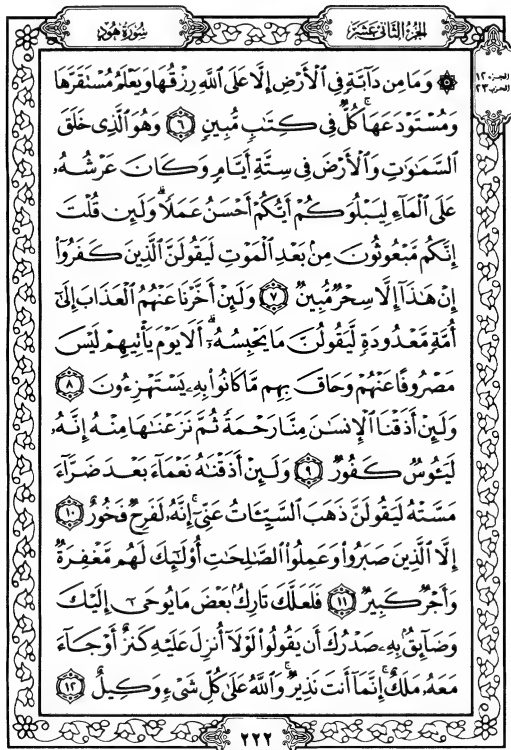 الجزء الثاني عشر
سورة هود
الجزء ١٢
الحزب ٢٣
۞ وَمَا مِن دَآبَّةٍ فِي الْأَرْضِ إِلَّا عَلَى اللَّهِ رِزْقُهَا وَيَعْلَمُ مُسْتَقَرَّهَا
وَمُسْتَوْدَعَهَا ۚ كُلٌّ فِي كِتَٰبٍ مُّبِينٍ ٦ وَهُوَ الَّذِي خَلَقَ
السَّمَٰوَٰتِ وَالْأَرْضَ فِي سِتَّةِ أَيَّامٍ وَكَانَ عَرْشُهُۥ
عَلَى الْمَآءِ لِيَبْلُوَكُمْ أَيُّكُمْ أَحْسَنُ عَمَلًا ۗ وَلَئِن قُلْتَ
إِنَّكُم مَّبْعُوثُونَ مِنۢ بَعْدِ الْمَوْتِ لَيَقُولَنَّ الَّذِينَ كَفَرُوٓا۟
إِنْ هَٰذَآ إِلَّا سِحْرٌ مُّبِينٌ ٧ وَلَئِنْ أَخَّرْنَا عَنْهُمُ الْعَذَابَ إِلَىٰٓ
أُمَّةٍ مَّعْدُودَةٍ لَّيَقُولُنَّ مَا يَحْبِسُهُۥٓ ۗ أَلَا يَوْمَ يَأْتِيهِمْ لَيْسَ
مَصْرُوفًا عَنْهُمْ وَحَاقَ بِهِم مَّا كَانُوا۟ بِهِۦ يَسْتَهْزِءُونَ ٨
وَلَئِنْ أَذَقْنَا الْإِنسَٰنَ مِنَّا رَحْمَةً ثُمَّ نَزَعْنَٰهَا مِنْهُ إِنَّهُۥ
لَيَـُٔوسٌ كَفُورٌ ٩ وَلَئِنْ أَذَقْنَٰهُ نَعْمَآءَ بَعْدَ ضَرَّآءَ
مَسَّتْهُ لَيَقُولَنَّ ذَهَبَ السَّيِّـَٔاتُ عَنِّيٓ ۚ إِنَّهُۥ لَفَرِحٌ فَخُورٌ ١٠
إِلَّا الَّذِينَ صَبَرُوا۟ وَعَمِلُوا۟ الصَّٰلِحَٰتِ أُو۟لَٰٓئِكَ لَهُم مَّغْفِرَةٌ
وَأَجْرٌ كَبِيرٌ ١١ فَلَعَلَّكَ تَارِكٌۢ بَعْضَ مَا يُوحَىٰٓ إِلَيْكَ
وَضَآئِقٌۢ بِهِۦ صَدْرُكَ أَن يَقُولُوا۟ لَوْلَآ أُنزِلَ عَلَيْهِ كَنزٌ أَوْ جَآءَ
مَعَهُۥ مَلَكٌ ۚ إِنَّمَآ أَنتَ نَذِيرٌ ۚ وَاللَّهُ عَلَىٰ كُلِّ شَيْءٍ وَكِيلٌ ١٢
٢٢٢